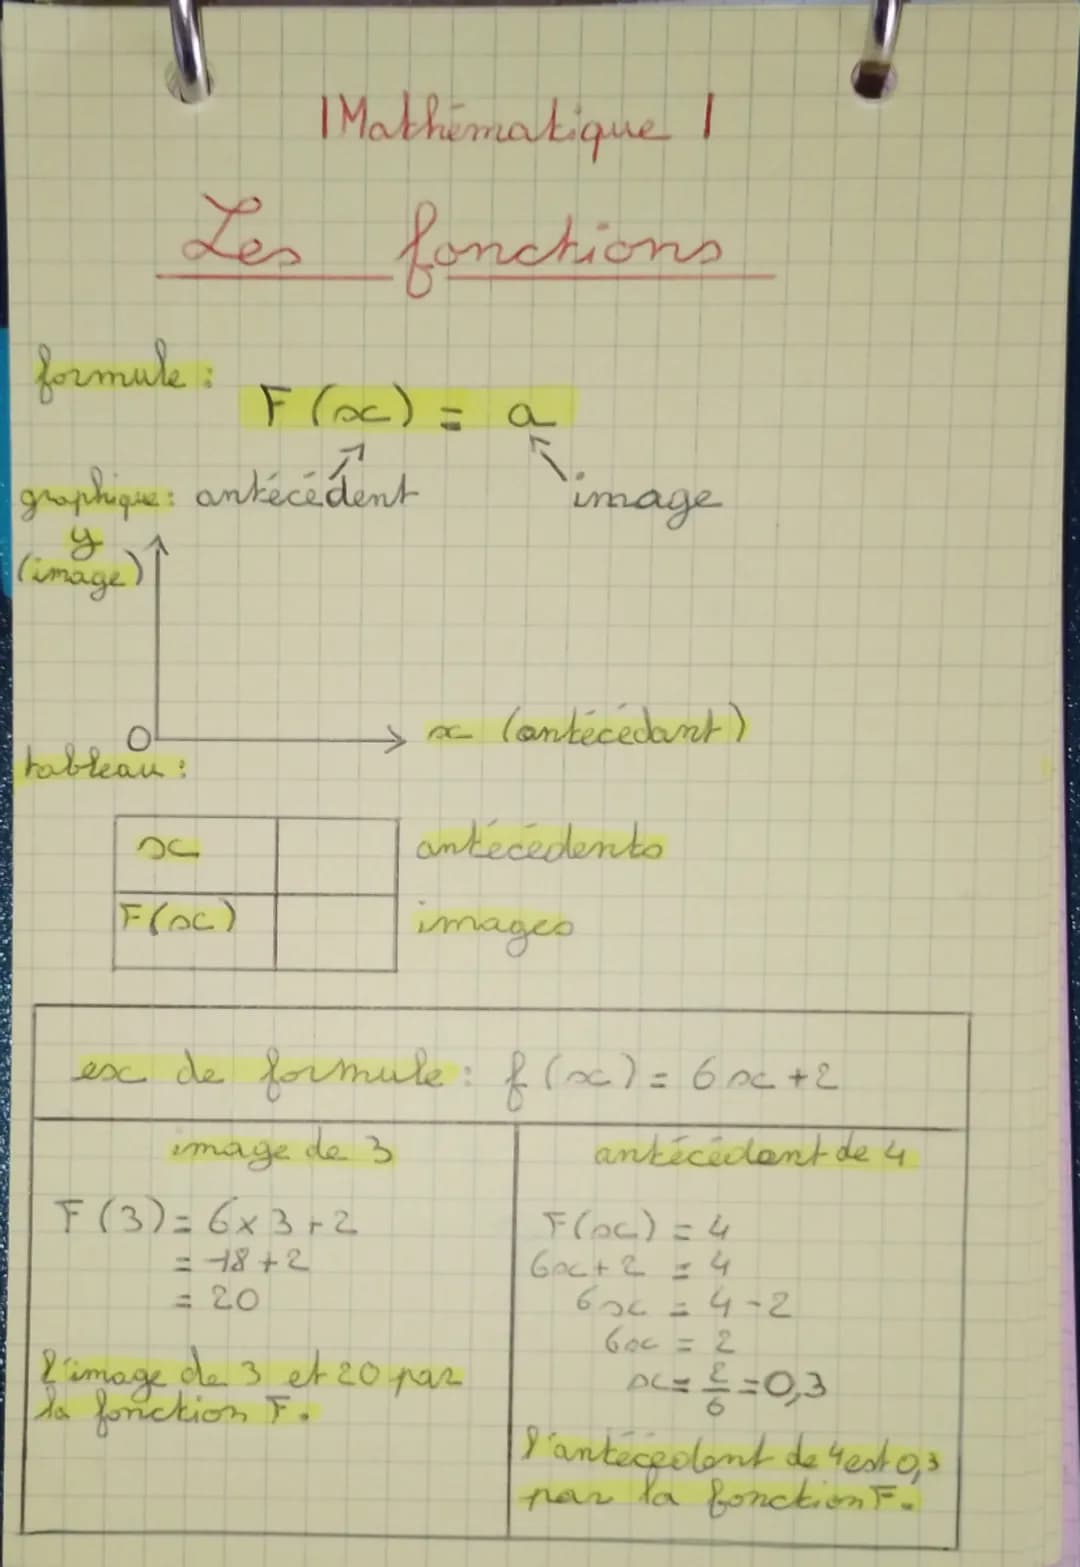 Mathématique
Les fonctions
formule :
F(x) = a
graphique : antécédent image
y
(image)
0
x (antécédant)
tableau :
x antécédents
F(x) images
ex de formule : f(x) = 6x+2
image de 3
F(3) = 6x3+2
= 18+2
= 20
l'image de 3 et 20 par
la fonction F.
antécédant de 4
F(x) = 4
6x+2 = 4
6x = 4-2
6x = 2
x = 2/6 = 0,3
l'antécédant de 4 est 0,3
par la fonction F.